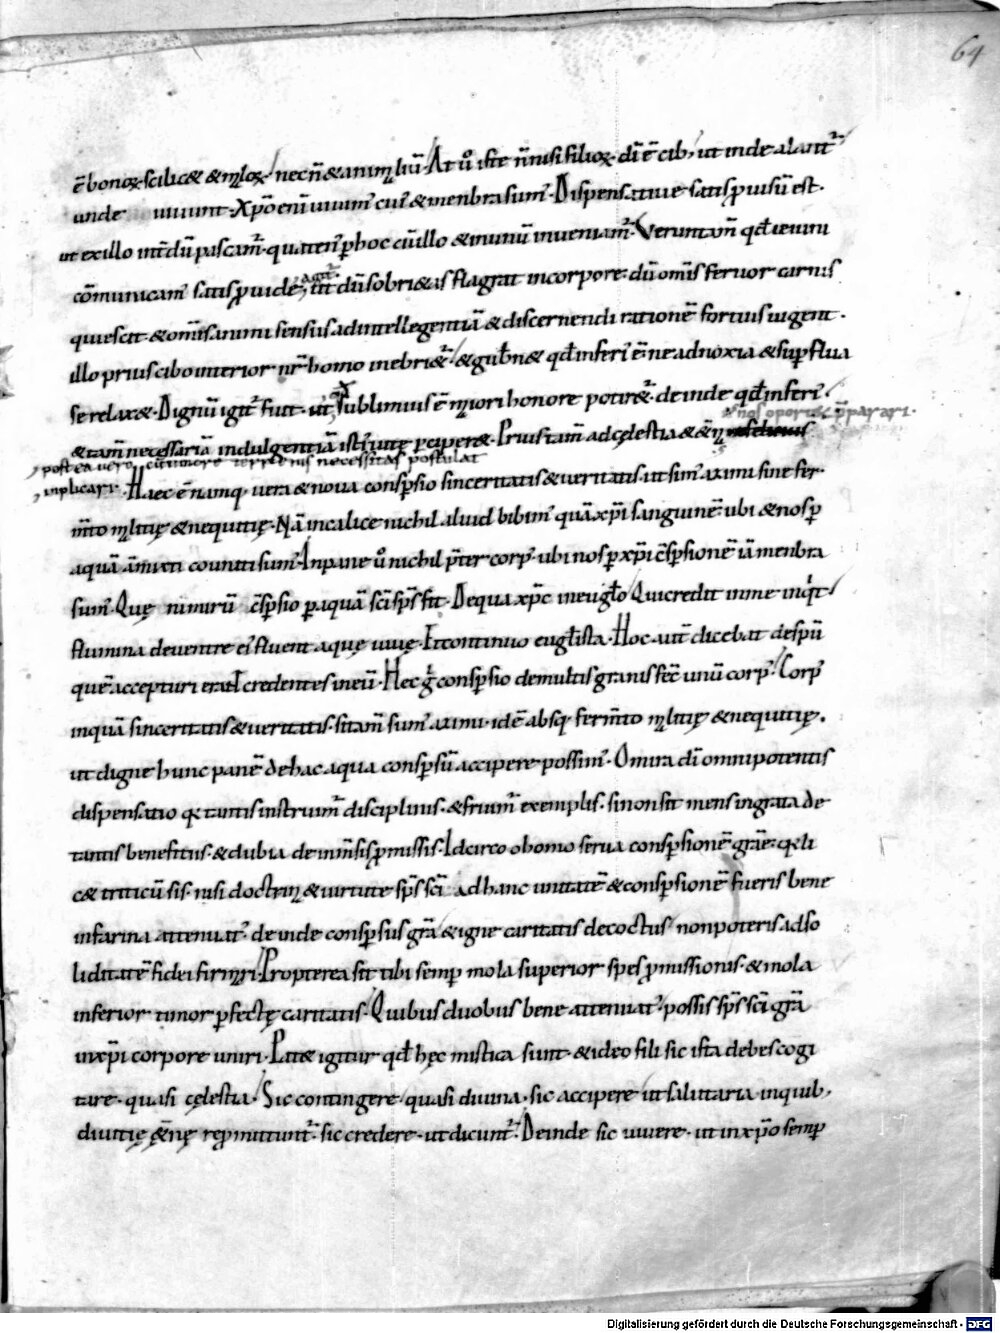 64
ē bonoꝝ scilicet & maloꝝ nec n̄ & animaliū. At ů iste n̄ nisi filioꝝ dī ē cib; ut inde alant᷑
unde uiuunt. Xp̄o enī uiuim᷒ cui᷒ & menbra sum᷒. Dispensatiue satis ꝓuisū est.
ut ex illo int̄dū pascam᷒ quaten᷒ ꝑ hoc cū illo & in unū inueniam᷒. Verumtam̄ qd̄ ieiuni
cōmunicam᷒ satis ꝓuidē agit᷑ ut dū sobrietas flagrat in corpore dū om̄is feruor carnis
quiescit & om̄is animi sensus ad intellegentiā & discernendi rationē fortius uigent.
illo prius cibo interior nr̄ homo inebriet᷑ & gub̄net qd̄ inferi᷒ ē ne ad noxia & suꝑflua
se relaxet. Dignū igit᷑ fuit ut sublimius ē maiori honore potiret᷑ deinde qd̄ inferi᷒
nos oportet p̄parari.
& tam̄ necessariā indulgentiā isti᷒ uitę ꝑcipere. Prius tam̄ ad cęlestia & ęt̄na
postea uero cum more terrenis necessitas postulat
inplicari. Haec ē nunq᷒ uera & noua consp̄sio sinceritatis & ueritatis ut sim᷒ azimi sine fer
m̄to malitię & nequitię. Nā in calice nichil aliud bibim᷒ quā xp̄i sanguinē ubi & nos ꝑ
aquā āmixti couniti sum᷒. In pane ů nichil p̄ter corp᷒ ubi nos ꝑ xp̄i c̄sp̄sionē iā menbra
sum᷒. Quę nimirū c̄sp̄sio ꝑ aquā sc̄i sp̄s fit. De qua xp̄c in euḡlo Qui credit in me inqͥt
flumina de uentre ei᷒ fluent aquę uiuę. Et continuo euḡlista. Hoc aut̄ dicebat de sp̄u
quē accepturi erant credentes in eū. Hec g̊ consp̄sio de multis granis fec̄ unū corp᷒. Corp᷒
inquā sinceritatis & ueritatis. si tam̄ sum᷒ azimi. id ē absq; ferm̄to malitię & nequitię.
ut digne hunc panē de hac aqua consp̄sū accipere possim᷒. O mira dī omnipotentis
dispensatio q tantis instruim᷒ disciplinis. & fruim᷒ exemplis. si non sit mens ingrata de
tantis benefitiis. & dubia de inm̄sis ꝓmissis. Idcirco o homo serua consp̄sionē grāe. q li
cet triticū sis. nisi doctrina & uirtute sp̄s sc̄i ad hanc unitatē & consp̄sionē fueris bene
in farina attenuat᷒. deinde consp̄sus grā & igne caritatis decoctus non poteris ad so
liditatē fidei firmari. Propterea sit tibi semꝑ mola superior spes ꝓmissionis. & mola
inferior timor ꝑfectę caritatis. Quibus duobus bene attenuat᷒ possis sp̄s sc̄i grā
in xp̄i corpore uniri. Patet igitur qd̄ hęc mistica sunt & ideo fili sic ista debes cogi
tare. quasi cęlestia. Sic contingere quasi diuina. sic accipere ut salutaria in quib;
diuitię ęt̄nę repromittunt᷑. sic credere. ut dicunt᷑. Deinde sic uiuere. ut in xp̄o semꝑ
Digitalisierung gefördert durch die Deutsche Forschungsgemeinschaft - DFG